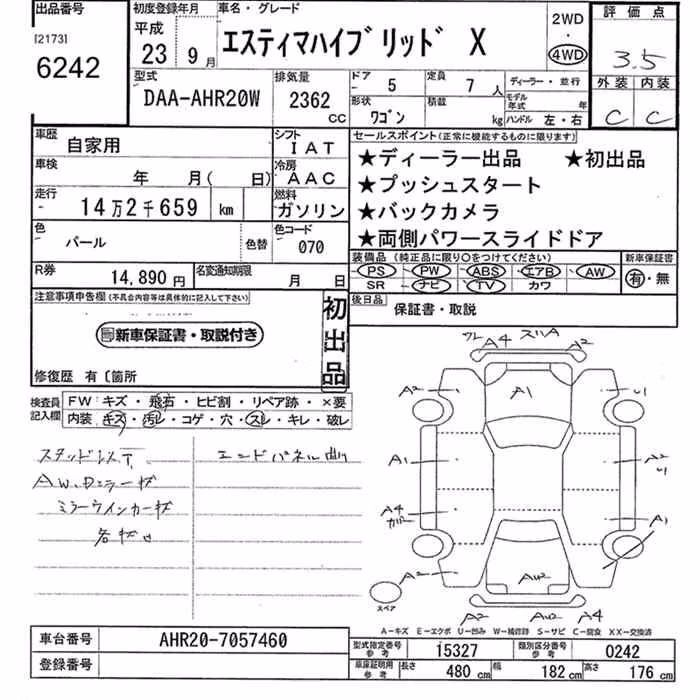 出品番号
[2173]
6242
初度登録年月
平成
23 9月
車名・グレード
エスティマハイブリッド X
2WD
・
4WD
評価点
3.5
外装 内装
C C
型式
DAA-AHR20W
排気量
2362
CC
ドア
- 5
定員
7人
ディーラー・並行
形状
ワゴン
積載
kg
モデル年式 年
ハンドル 左・右
車歴
自家用
シフト
IAT
車検
年 月( 日)
冷房
AAC
走行
-
14万2千659 km
燃料
ガソリン
色
パール
色替
色コード
070
R券
14,890円
名変通知期限
月 日
セールスポイント(正常に機能するものに限ります)
★ディーラー出品 ★初出品
★プッシュスタート
★バックカメラ
★両側パワースライドドア
装備品 (純正品に限り○をつけてください) 新車保証書
PS PW ABS エアB AW
SR ナビ TV カワ
有・無
後日品
保証書・取説
注意事項申告欄(不具合内容等は具体的に記入して下さい)
新車保証書・取説付き
初出品
修復歴 有〔箇所
検査員
記入欄
FW:キズ・飛石・ヒビ割・リペア跡・×要
内装:キズ・汚レ・コゲ・穴・スレ・キレ・破レ
スタッドレス
エンドパネル曲
AW,Dミラーキズ
ミラーウインカーキズ
A4
A2
A1
A2
A1
A4
A2
A2
A1
AW2
A2
AW2
A4
スペア
A-キズ E-エクボ U-凹み W-補修跡 S-サビ C-腐食 XX-交換済
車台番号
AHR20-7057460
登録番号
型式指定番号
参考
15327
類別区分番号
参考
0242
車庫証明用
参考
長さ 480cm
幅 182cm
高さ 176cm